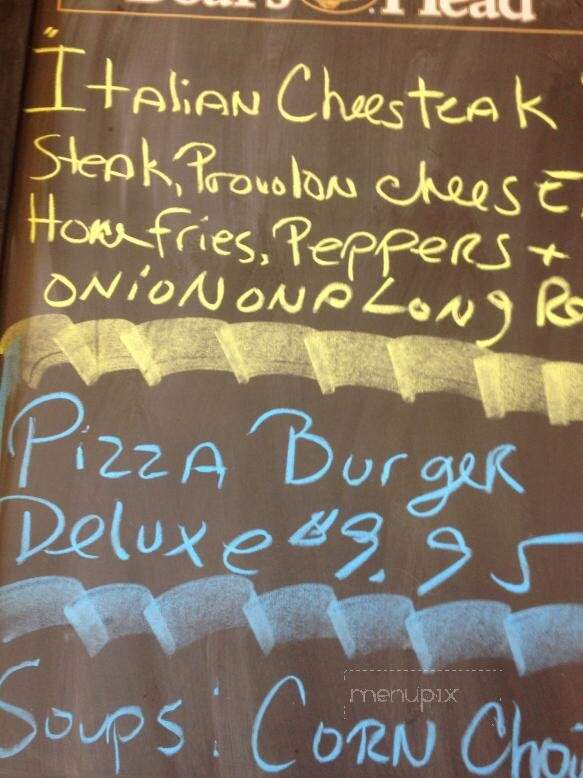 Boar's Head
"Italian Cheesteak
Steak, Provolon cheese
Home fries, Peppers +
onion on a Long Ro
Pizza Burger
Deluxe $9.95
Soups: Corn Cho
menupix